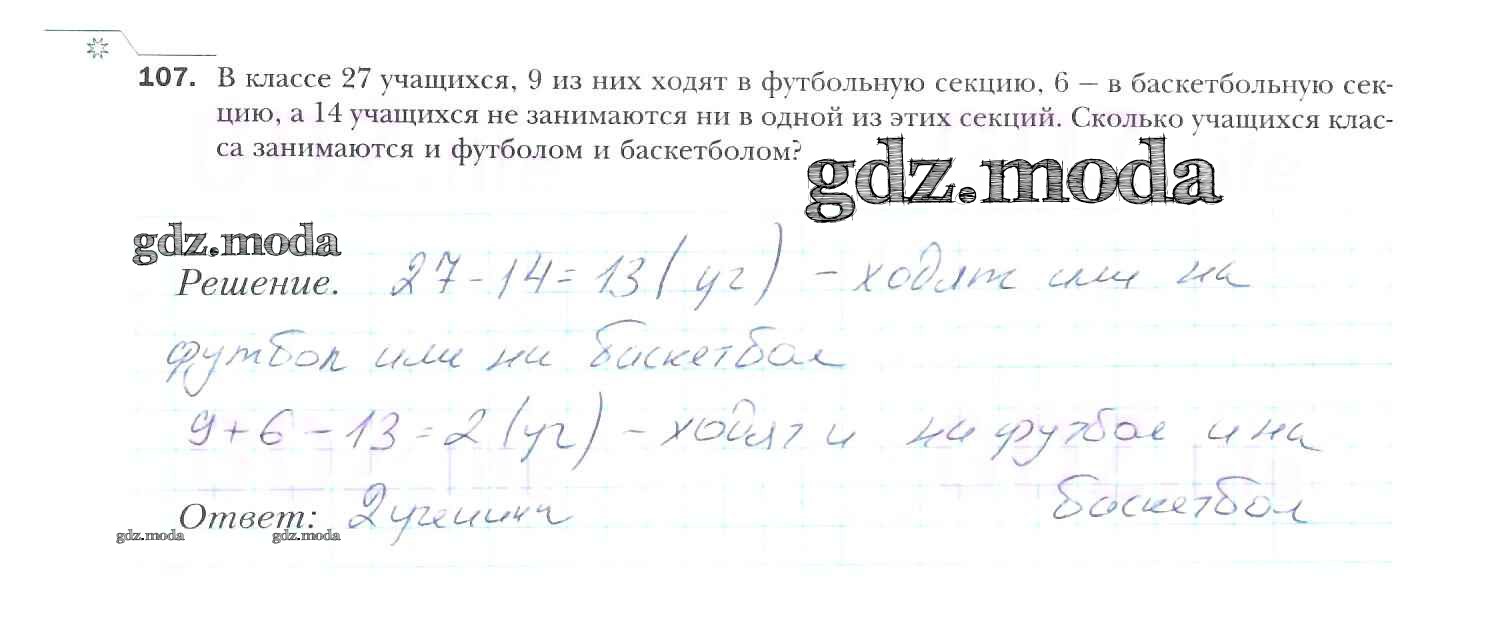 107. В классе 27 учащихся, 9 из них ходят в футбольную секцию, 6 – в баскетбольную сек-
цию, а 14 учащихся не занимаются ни в одной из этих секций. Сколько учащихся клас-
са занимаются и футболом и баскетболом?
gdz.moda
gdz.moda
Решение. 27 - 14 = 13 (уч) - ходят или на
футбол или на баскетбол
9 + 6 - 13 = 2 (уч) - ходят и на футбол и на
баскетбол
Ответ: 2 ученика
gdz.moda gdz.moda